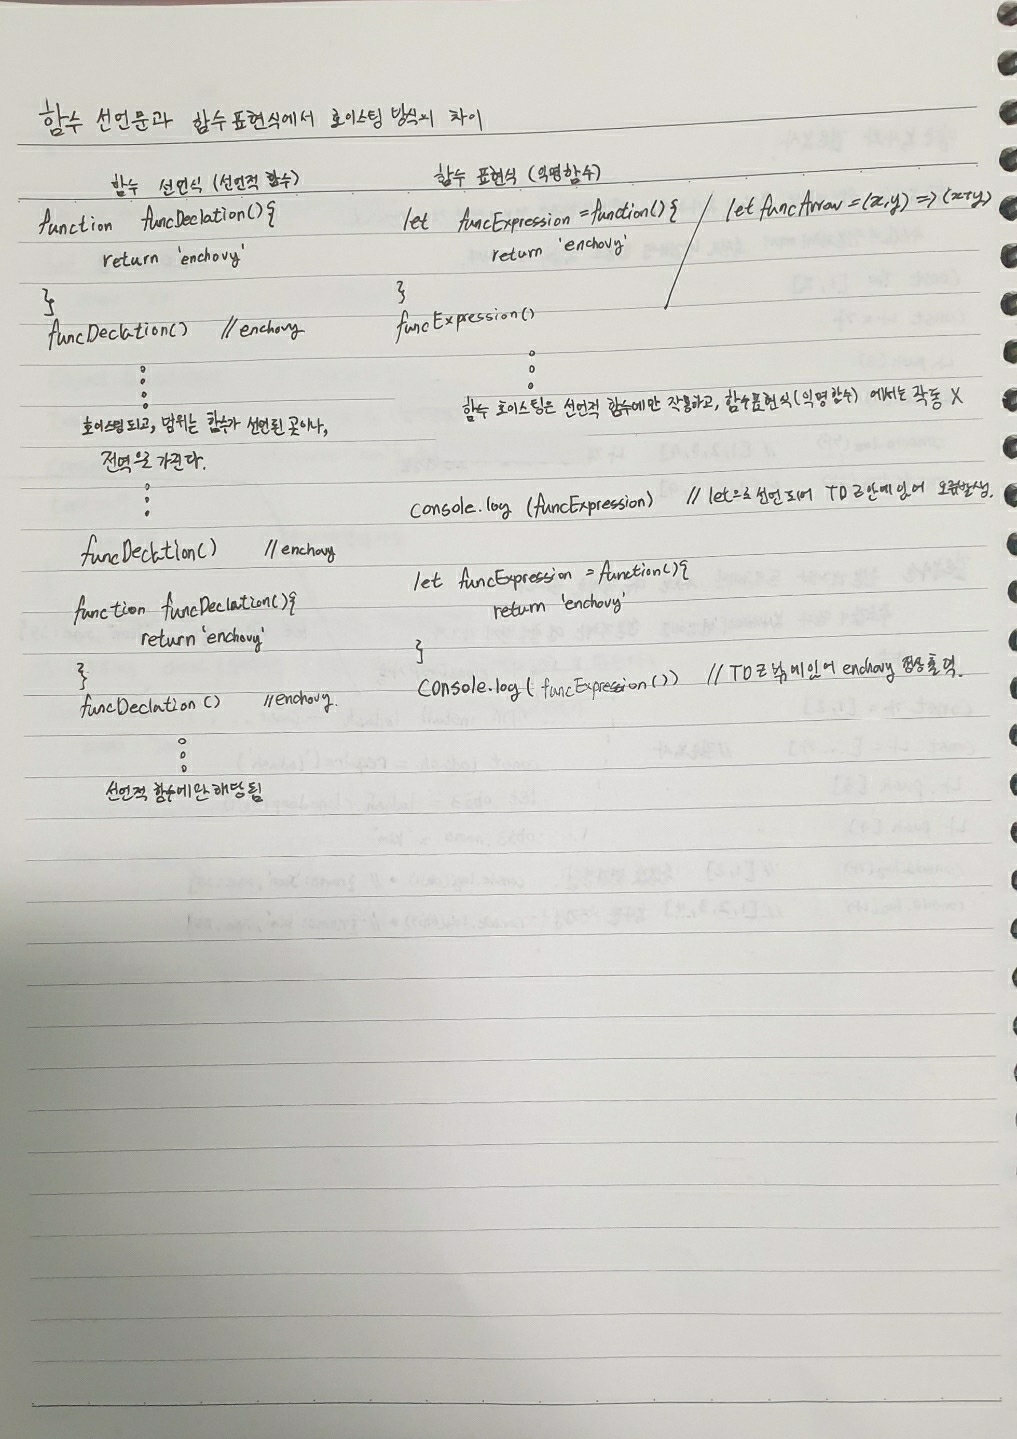 함수 선언문과 함수표현식에서 호이스팅 방식의 차이
함수 선언식 (선언적 함수)
function funcDeclation(){
return 'enchovy'
}
funcDeclation() // enchovy
호이스팅 되고, 범위는 함수가 선언된 곳이나,
전역으로 가진다.
funcDeclation() // enchovy
function funcDeclation(){
return 'enchovy'
}
funcDeclation() // enchovy.
선언적 함수에만 해당됨
함수 표현식 (익명함수)
let funcExpression = function(){
return 'enchovy'
}
funcExpression()
let funcArrow = (x,y) => (x+y)
함수 호이스팅은 선언적 함수에만 작용하고, 함수표현식(익명함수) 에서는 작동 X
console.log (funcExpression) // let으로 선언되어 TDZ안에 있어 오류발생.
let funcExpression = function(){
return 'enchovy'
}
console.log( funcExpression()) // TDZ밖에 있어 enchovy 정상출력.